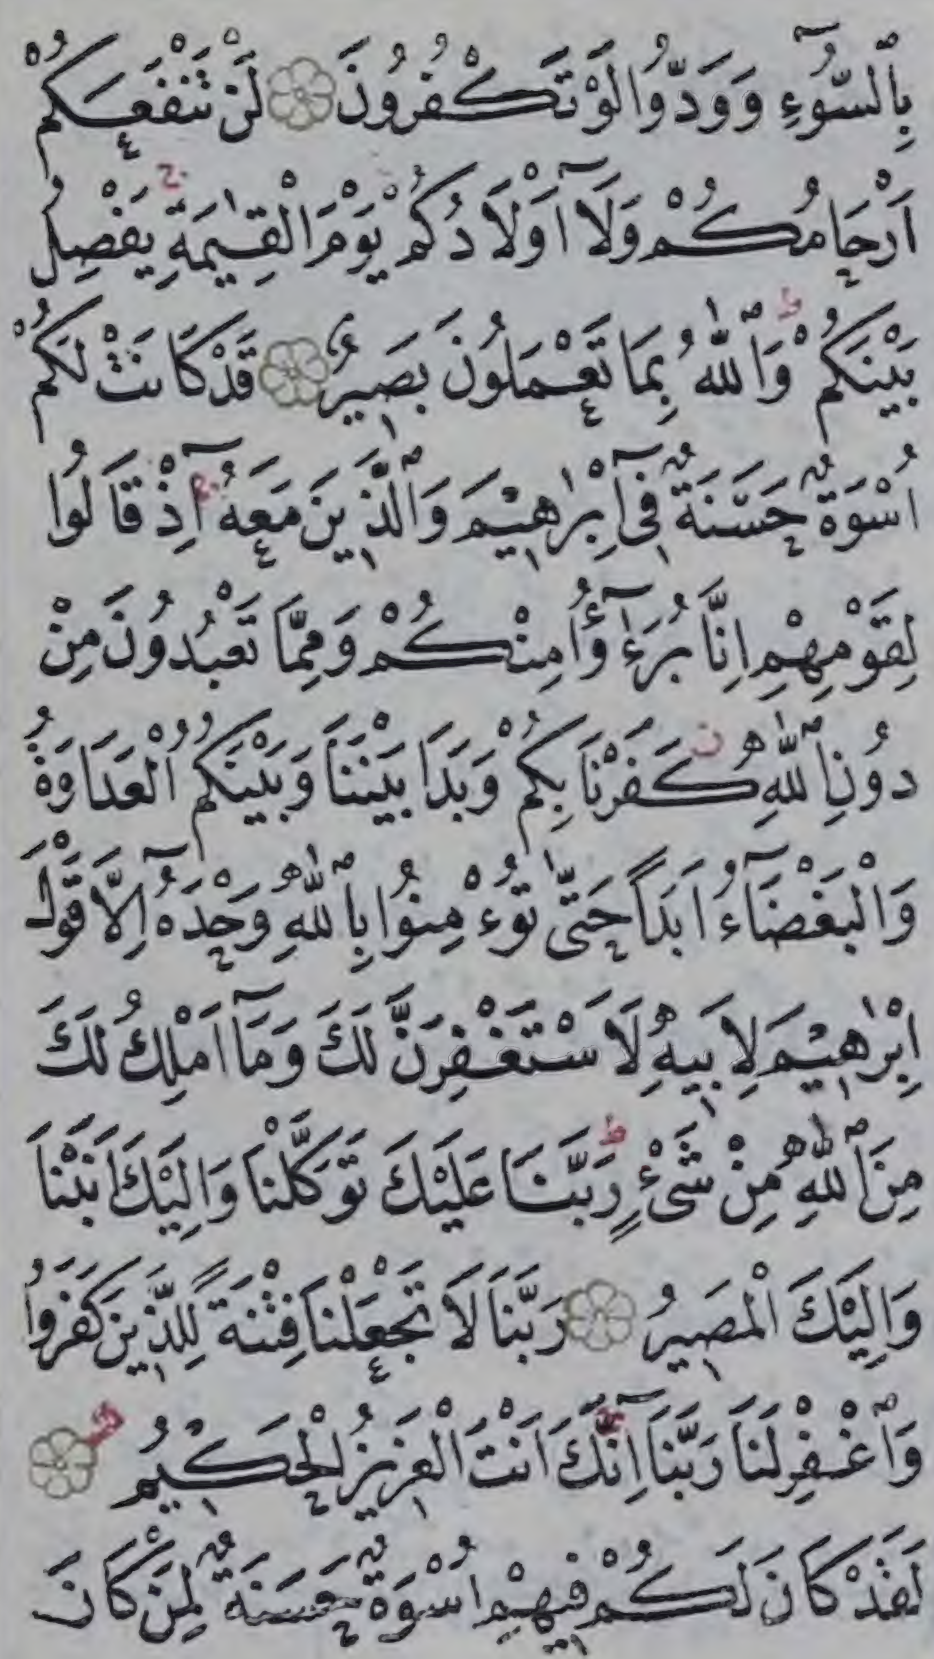 بِالسُّوءِ وَوَدُّوا لَوْ تَكْفُرُونَ لَنْ تَنْفَعَكُمْ
اَرْحَامُكُمْ وَلَآ اَوْلَادُكُمْ يَوْمَ الْقِيٰمَةِ يَفْصِلُ
بَيْنَكُمْ وَاللّٰهُ بِمَا تَعْمَلُونَ بَصِيرٌ قَدْ كَانَتْ لَكُمْ
اُسْوَةٌ حَسَنَةٌ فِىٓ اِبْرٰهِيمَ وَالَّذِينَ مَعَهُٓ اِذْ قَالُوا
لِقَوْمِهِمْ اِنَّا بُرَءٰٓؤُا مِنْكُمْ وَمِمَّا تَعْبُدُونَ مِنْ
دُونِ اللّٰهِ كَفَرْنَا بِكُمْ وَبَدَا بَيْنَنَا وَبَيْنَكُمُ الْعَدَاوَةُ
وَالْبَغْضَآءُ اَبَدًا حَتّٰى تُوءْمِنُوا بِاللّٰهِ وَحْدَهُٓ اِلَّا قَوْلَ
اِبْرٰهِيمَ لِاَبِيهِ لَاَسْتَغْفِرَنَّ لَكَ وَمَآ اَمْلِكُ لَكَ
مِنَ اللّٰهِ مِنْ شَىْءٍ رَبَّنَا عَلَيْكَ تَوَكَّلْنَا وَاِلَيْكَ اَنَبْنَا
وَاِلَيْكَ الْمَصِيرُ رَبَّنَا لَا تَجْعَلْنَا فِتْنَةً لِلَّذِينَ كَفَرُوا
وَاغْفِرْ لَنَا رَبَّنَآ اِنَّكَ اَنْتَ الْعَزِيزُ الْحَكِيمُ
لَقَدْ كَانَ لَكُمْ فِيهِمْ اُسْوَةٌ حَسَنَةٌ لِمَنْ كَانَ